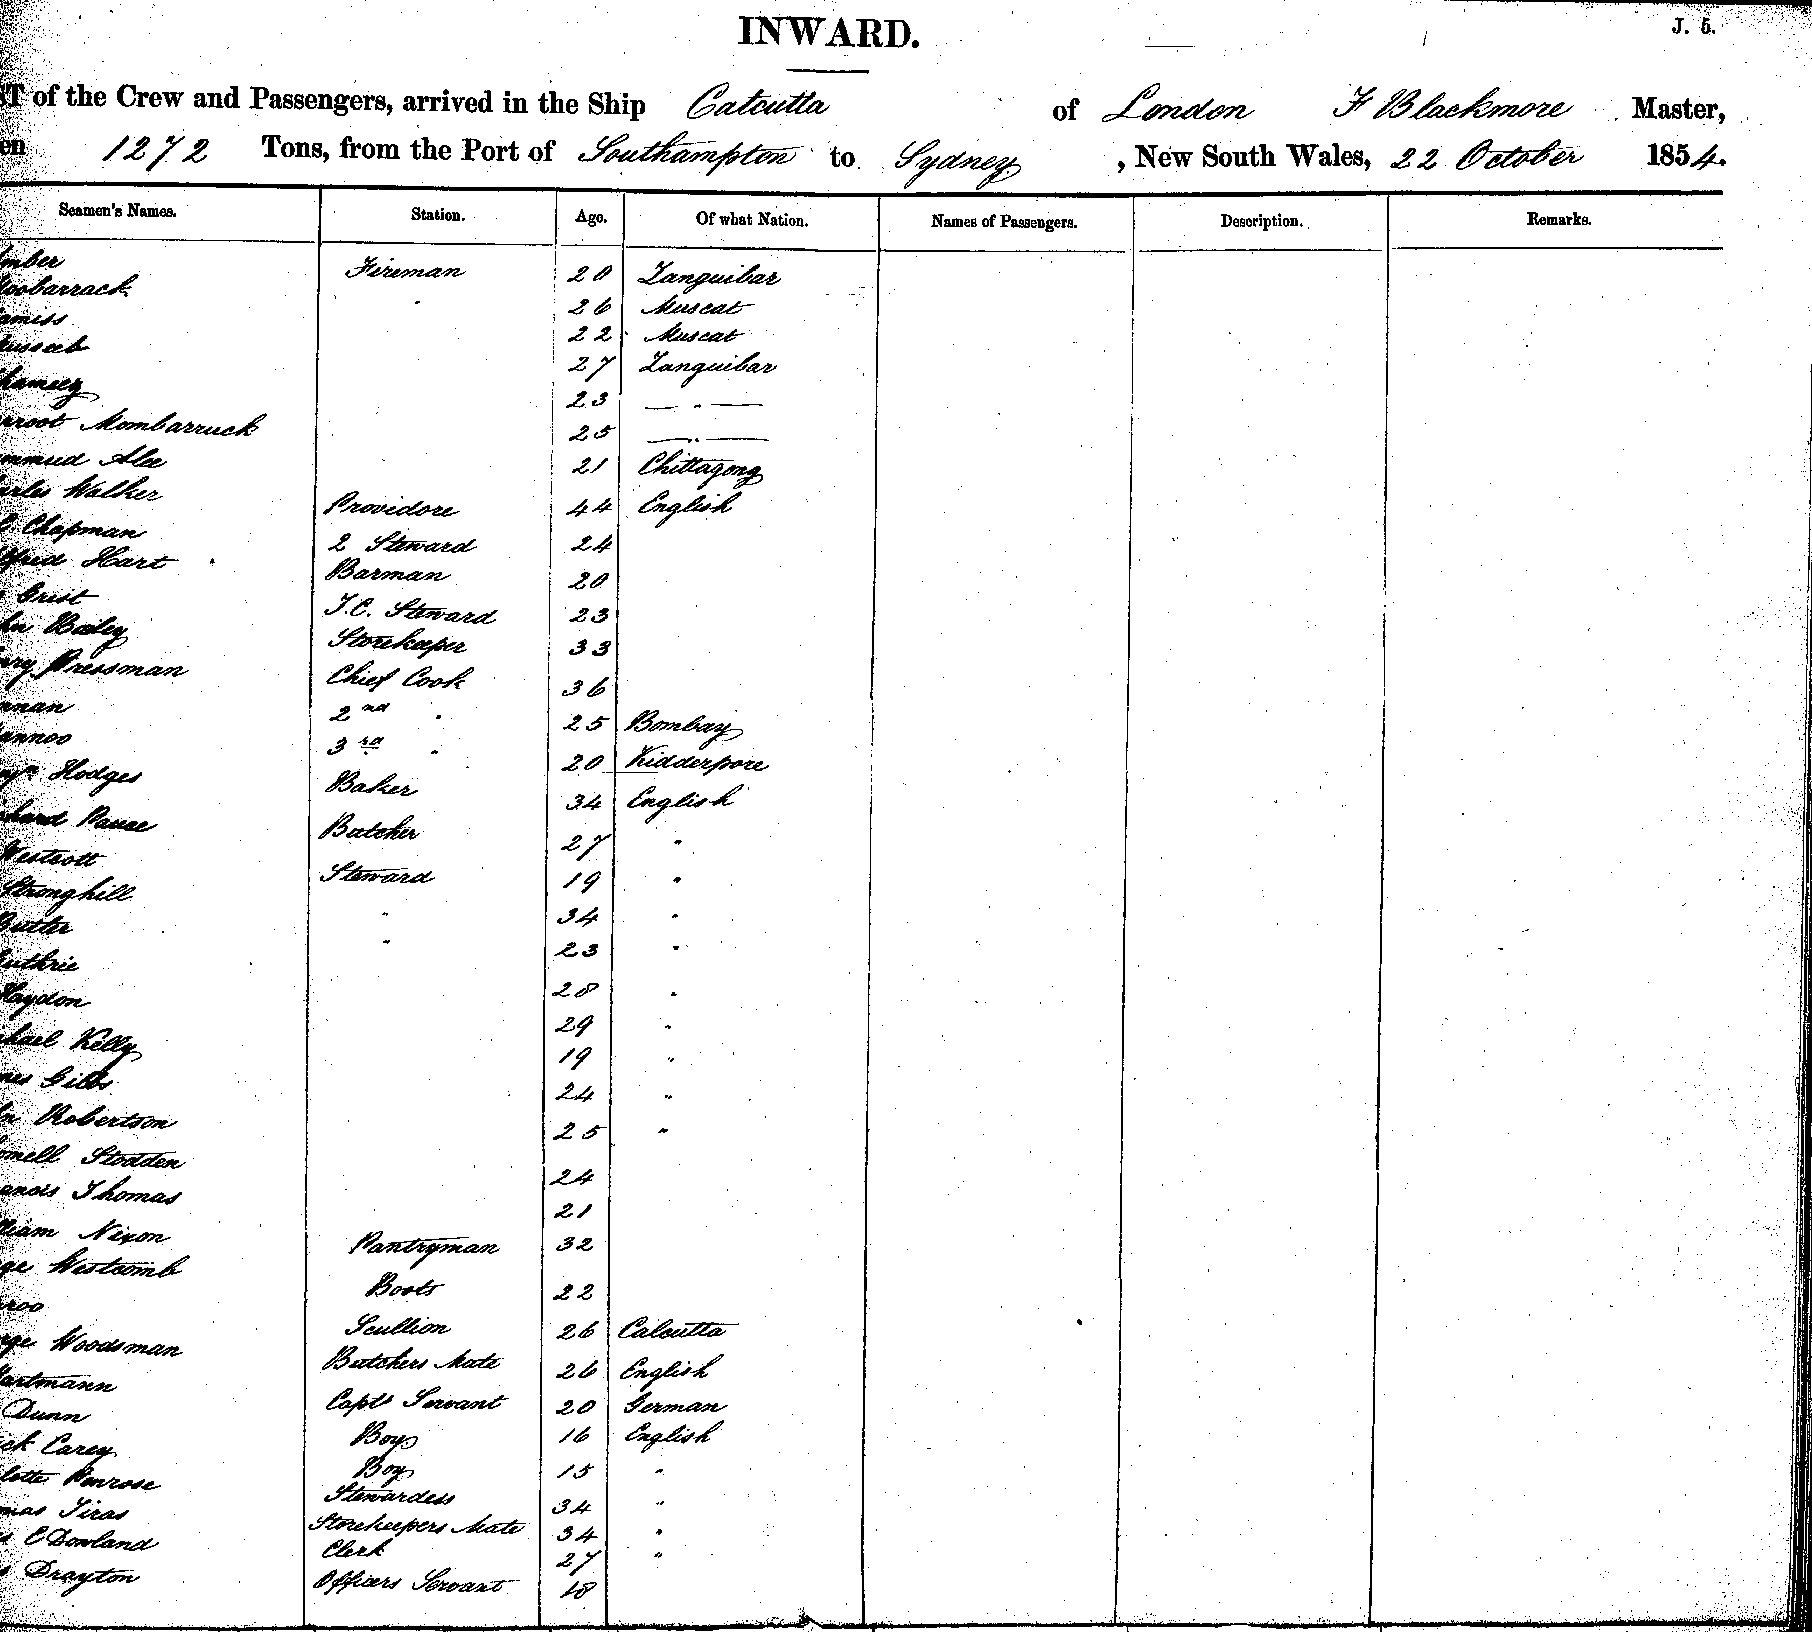 INWARD.
J. 5.
of the Crew and Passengers, arrived in the Ship Calcutta of London F Blackmore Master,
1272 Tons, from the Port of Southampton to Sydney, New South Wales, 22 October 1854.
Seamen's Names. Station. Age. Of what Nation. Names of Passengers. Description. Remarks.
Fireman 20 Zanguibar
26 Muscat
22 Muscat
27 Zanguibar
23 — " —
Mombarruck 25 — " —
Alee 21 Chittagong
Walker Providore 44 English
Chapman 2 Steward 24
Hart Barman 20
Grist T.C. Steward 23
Bailey Storekeeper 33
Pressman Chief Cook 36
2nd " 25 Bombay
3rd " 20 Kidderpore
Hodges Baker 34 English
Butcher 27 "
Westcott Steward 19 "
Stronghill " 34 "
Butler " 23 "
Guthrie 28 "
Haydon 29 "
Kelly 19 "
Gibbs 24 "
Robertson 25 "
Stodden 24
Thomas 21
Nixon Pantryman 32
Westcomb Boots 22
Scullion 26 Calcutta
Woodsman Butchers Mate 26 English
Hartmann Capts Servant 20 German
Dunn Boy 16 English
Carey Boy 15 "
Penrose Stewardess 34 "
Tiras Storekeepers Mate 34 "
E Dowland Clerk 27 "
Drayton Officers Servant 18